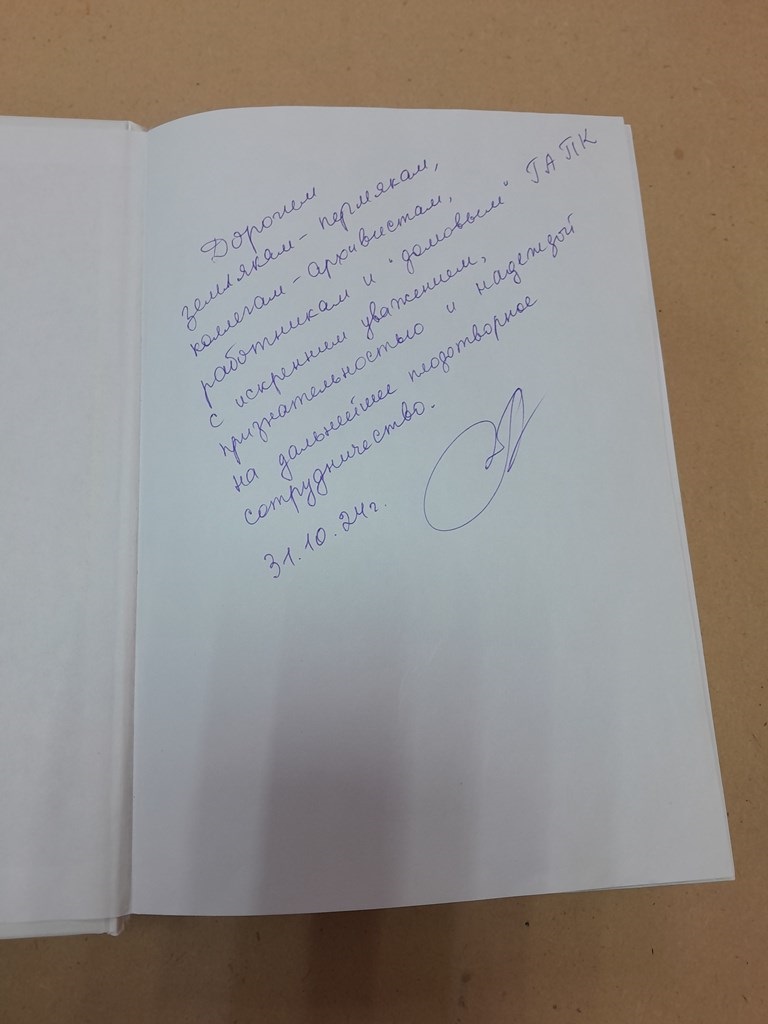 Дорогим
землякам - пермякам,
коллегам - архивистам,
работникам и "домовым" ГАПК
с искренним уважением,
признательностью и надеждой
на дальнейшее плодотворное
сотрудничество.
31.10.24г.